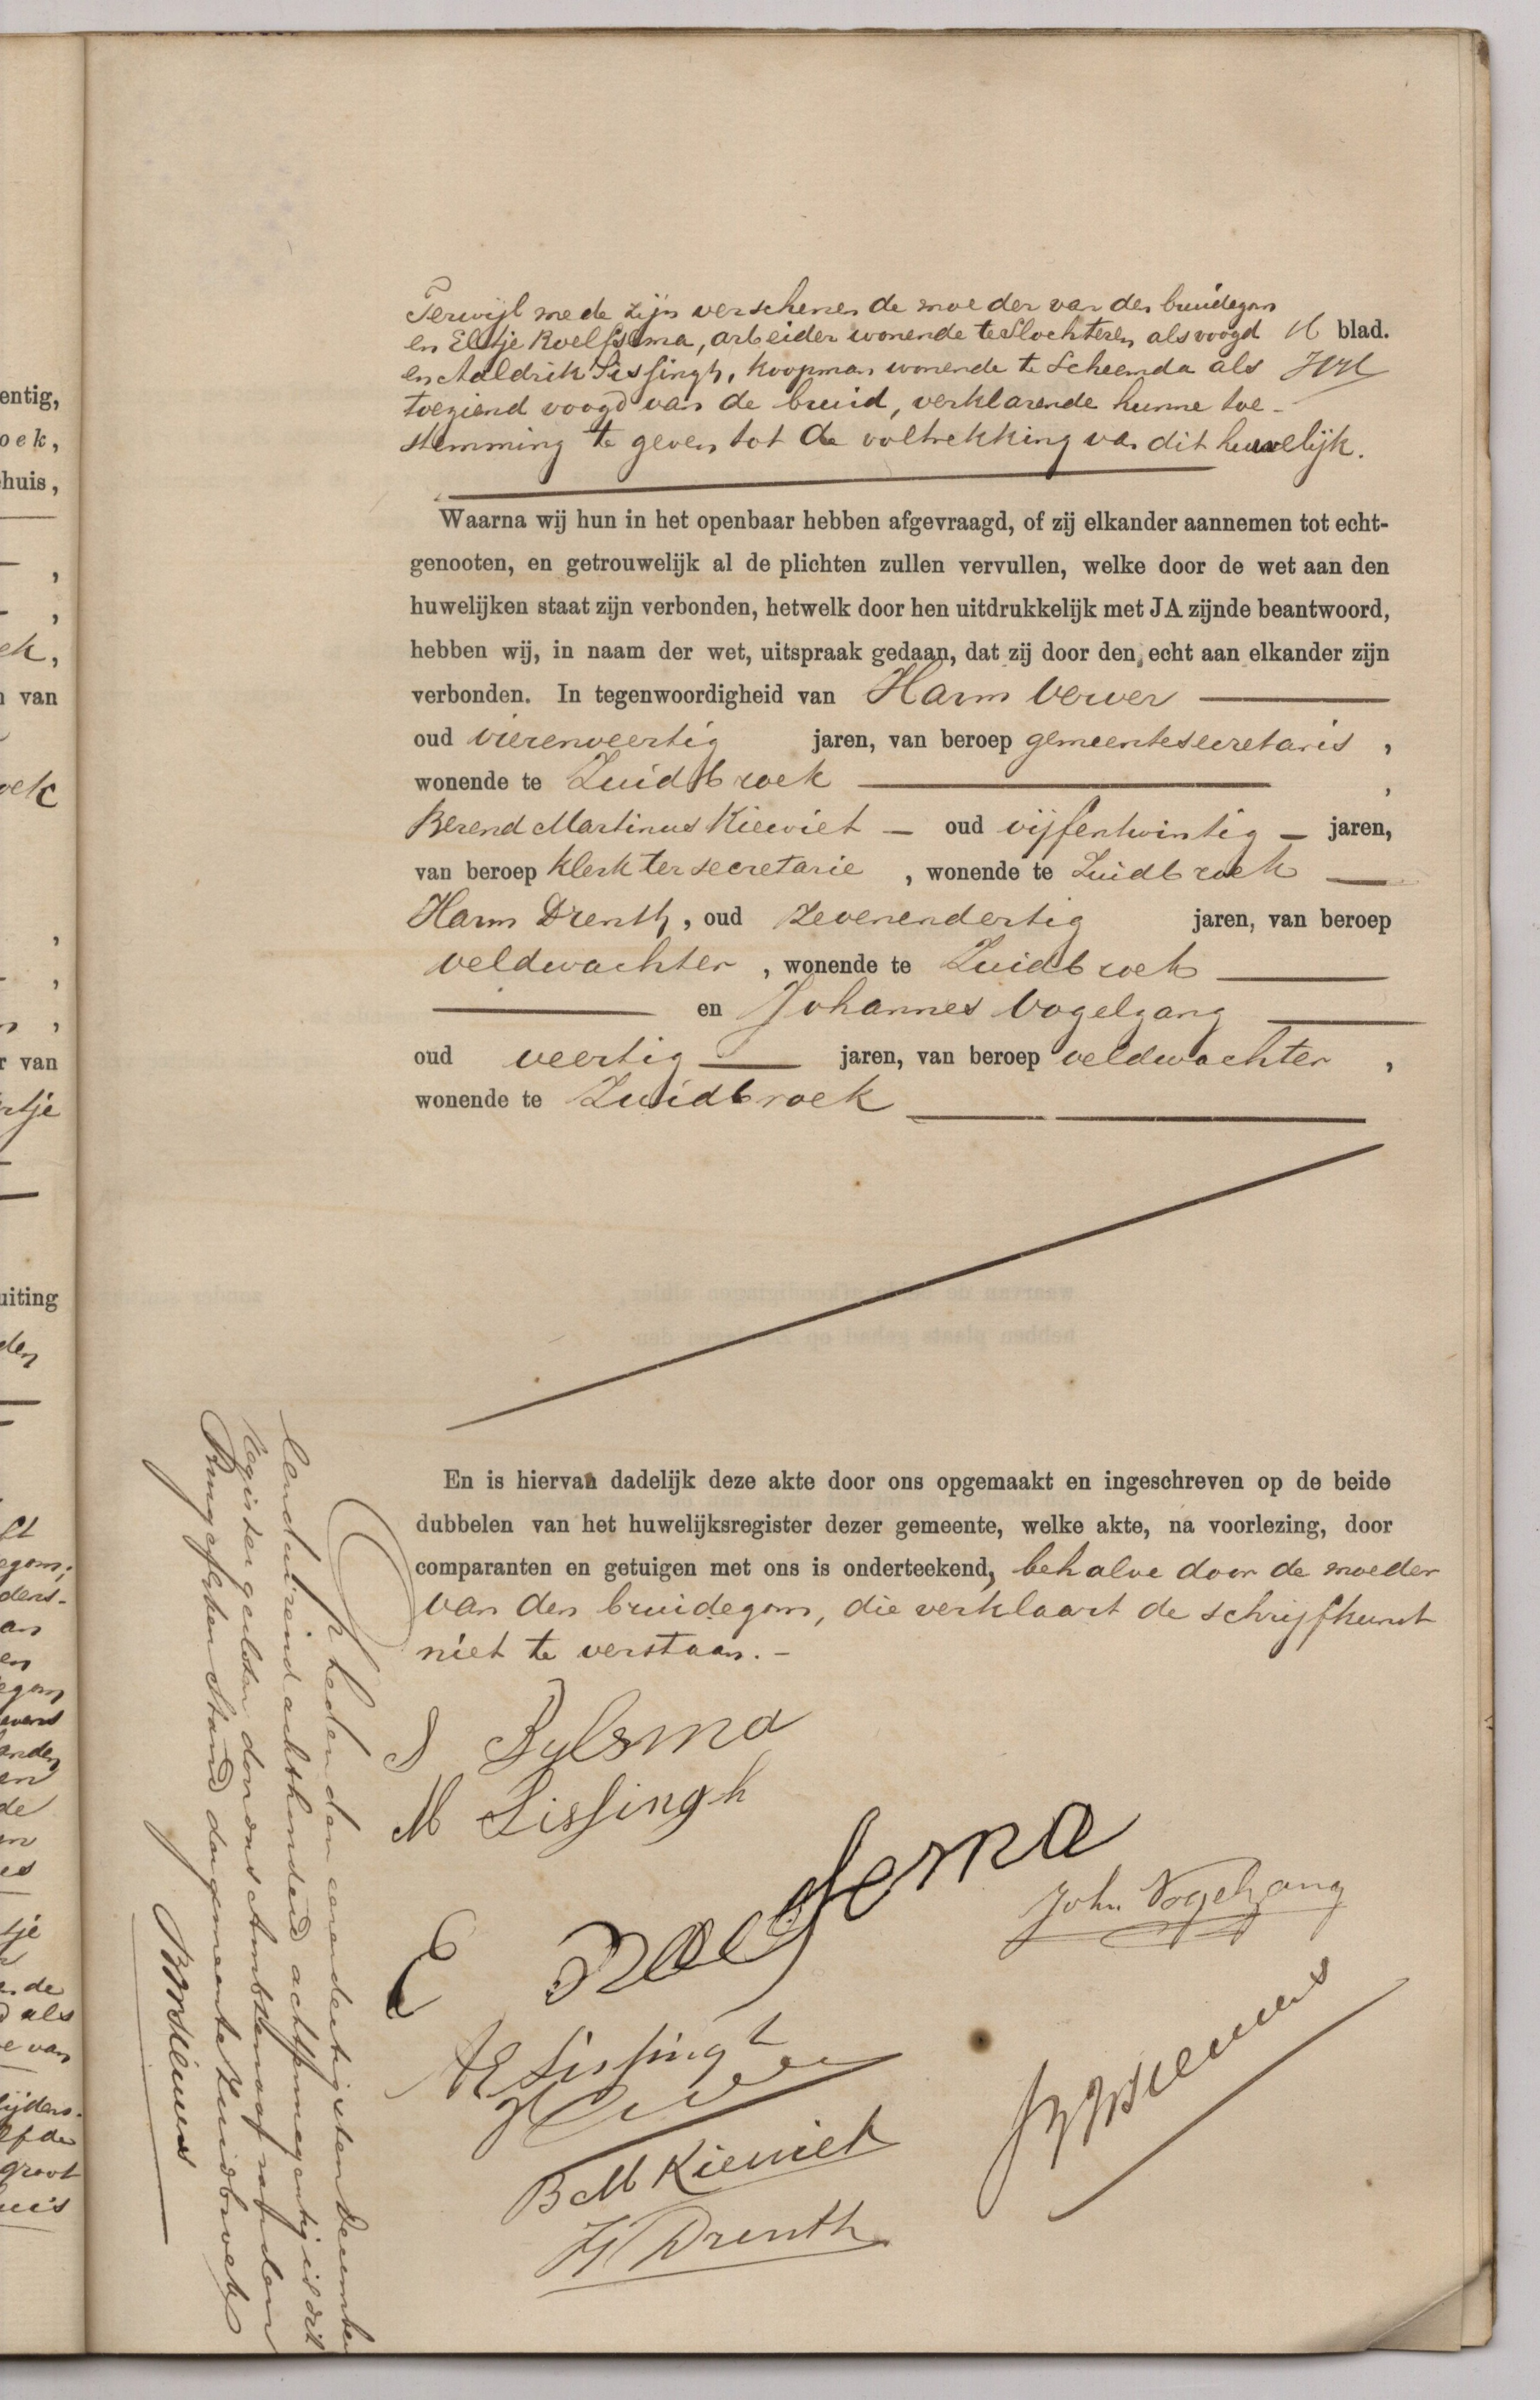 Terwijl mede zijn verschenen de moeder van den bruidegom
en Eltje Roelfsema, arbeider wonende te Slochteren als voogd 16 blad.
en Aaldrik Sissingh, koopman wonende te Scheemda als
toeziend voogd van de bruid, verklarende hunne toe-
stemming te geven tot de voltrekking van dit huwelijk.
Waarna wij hun in het openbaar hebben afgevraagd, of zij elkander aannemen tot echt-
genooten, en getrouwelijk al de plichten zullen vervullen, welke door de wet aan den
huwelijken staat zijn verbonden, hetwelk door hen uitdrukkelijk met JA zijnde beantwoord,
hebben wij, in naam der wet, uitspraak gedaan, dat zij door den echt aan elkander zijn
verbonden. In tegenwoordigheid van Harm Verver
oud vierenveertig jaren, van beroep gemeentesecretaris ,
wonende te Zuidbroek ,
Berend Martinus Kieviet – oud vijfentwintig – jaren,
van beroep klerk ter secretarie , wonende te Zuidbroek —
Harm Drenth, oud zevenendertig jaren, van beroep
veldwachter , wonende te Zuidbroek
en Johannes Vogelzang
oud veertig — jaren, van beroep veldwachter ,
wonende te Zuidbroek
En is hiervan dadelijk deze akte door ons opgemaakt en ingeschreven op de beide
dubbelen van het huwelijksregister dezer gemeente, welke akte, na voorlezing, door
comparanten en getuigen met ons is onderteekend, behalve door de moeder
van den bruidegom, die verklaart de schrijfkunst
niet te verstaan. –
S Bylsma
M Sissingh
E Roelfsema
John Vogelzang
AE Sissingh
HVerver
BM Kieviet
H Drenth
Op heden den eenendertigsten December
eenduizend achthonderd achtennegentig is dit
Register gesloten door ons Ambtenaar van den
Burgerlijken Stand der gemeente Zuidbroek